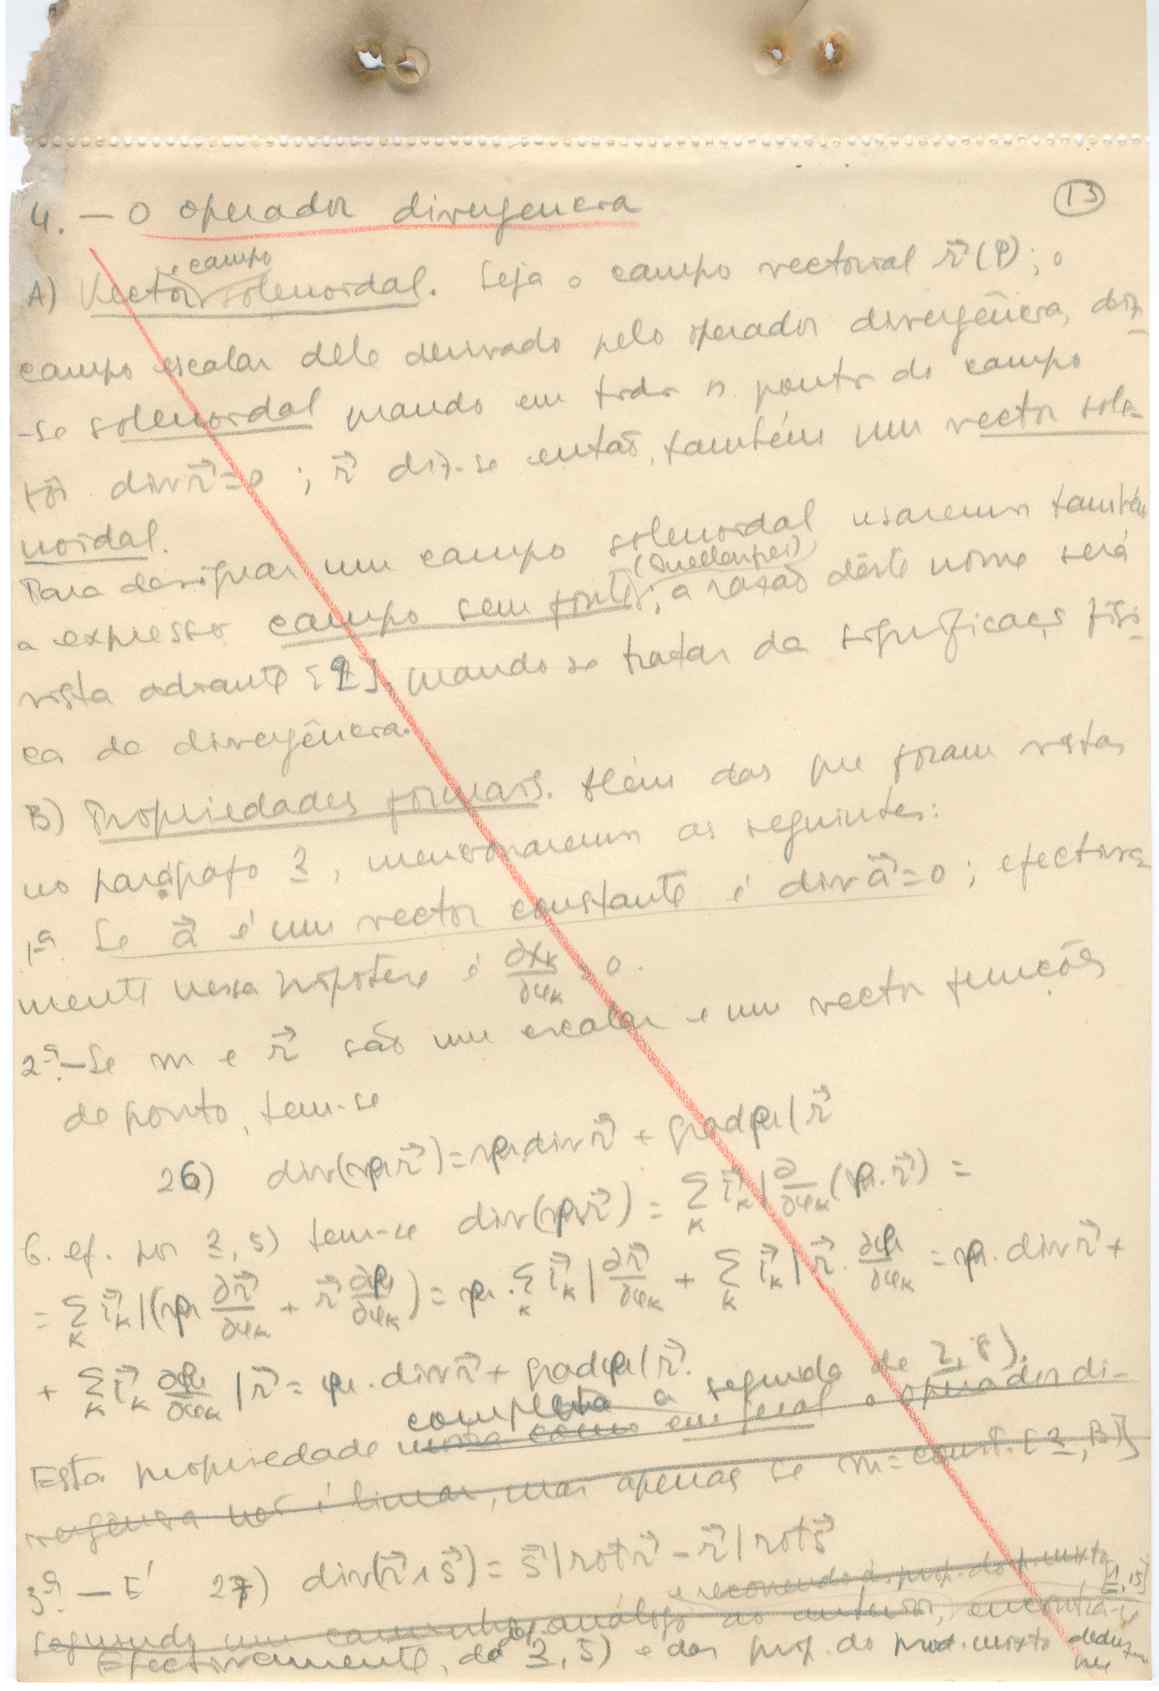 4. — O operador divergencia
13
A) Vector, campo solenoidal. Seja o campo vectorial r⃗(P); o
campo escalar dele derivado pelo operador divergência, diz-
-se solenoidal quando em todos os pontos do campo
fôr div r⃗ = 0 ; r⃗ diz-se então, também um vector sole-
noidal.
Para designar um campo solenoidal usaremos também
(Quellenfrei)
a expressão campo sem fontes; a razão dêste nome será
vista adiante [9], quando se tratar da significação físi-
ca da divergência.
B) Propriedades formais. Além das que foram vistas
no parágrafo 3, mencionaremos as seguintes:
1ª. Se a⃗ é um vector constante é div a⃗ = 0 ; efectiva-
mente nessa hipótese é ∂x_k/∂u_k = 0.
2ª. — Se m e r⃗ são um escalar e um vector funções
de ponto, tem-se
26) div(φ r⃗) = φ. div r⃗ + grad φ | r⃗
C. ef. por 3, 5) tem-se div(φ r⃗) = Σ_k i⃗_k | ∂/∂u_k (φ. r⃗) =
= Σ_k i⃗_k | (φ ∂r⃗/∂u_k + r⃗ ∂φ/∂u_k) = φ. Σ_k i⃗_k | ∂r⃗/∂u_k + Σ_k i⃗_k | r⃗. ∂φ/∂u_k = φ. div r⃗ +
+ Σ_k i⃗_k ∂φ/∂u_k | r⃗ = φ. div r⃗ + grad φ | r⃗.
completa a segunda de 3, 8).
Esta propriedade como em geral o operador di-
vergência não é linear, mas apenas se m = const. [3, B]
3ª. — É 27) div(r⃗ ∧ s⃗) = s⃗ | rot r⃗ − r⃗ | rot s⃗
e recorrendo às prop. do p. mixto [1, 15]
seguindo um caminho análogo ao anterior, encontra-se
Efectivamente, de 3, 5) e das prop. do prod. mixto deduz-se
que